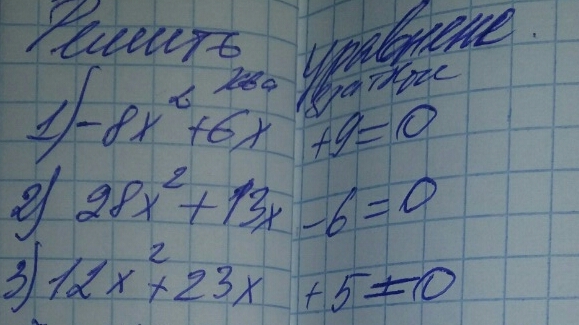 Решить уравнение.
квадратные
1) -8x² + 6x + 9 = 0
2) 28x² + 13x - 6 = 0
3) 12x² + 23x + 5 = 0